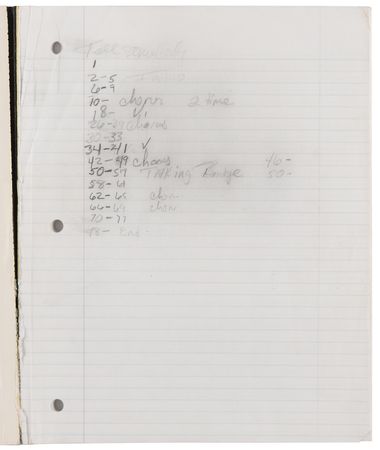 1
2-5
6-9
10- chorus 2 time
18- V1
26-29 Chorus
30-33
34-41 ✓
42-49 Chorus 46-
50-57 TalKing Bridge 50-
58-61
62-65 chor
66-69 chor
70-77
78- End-